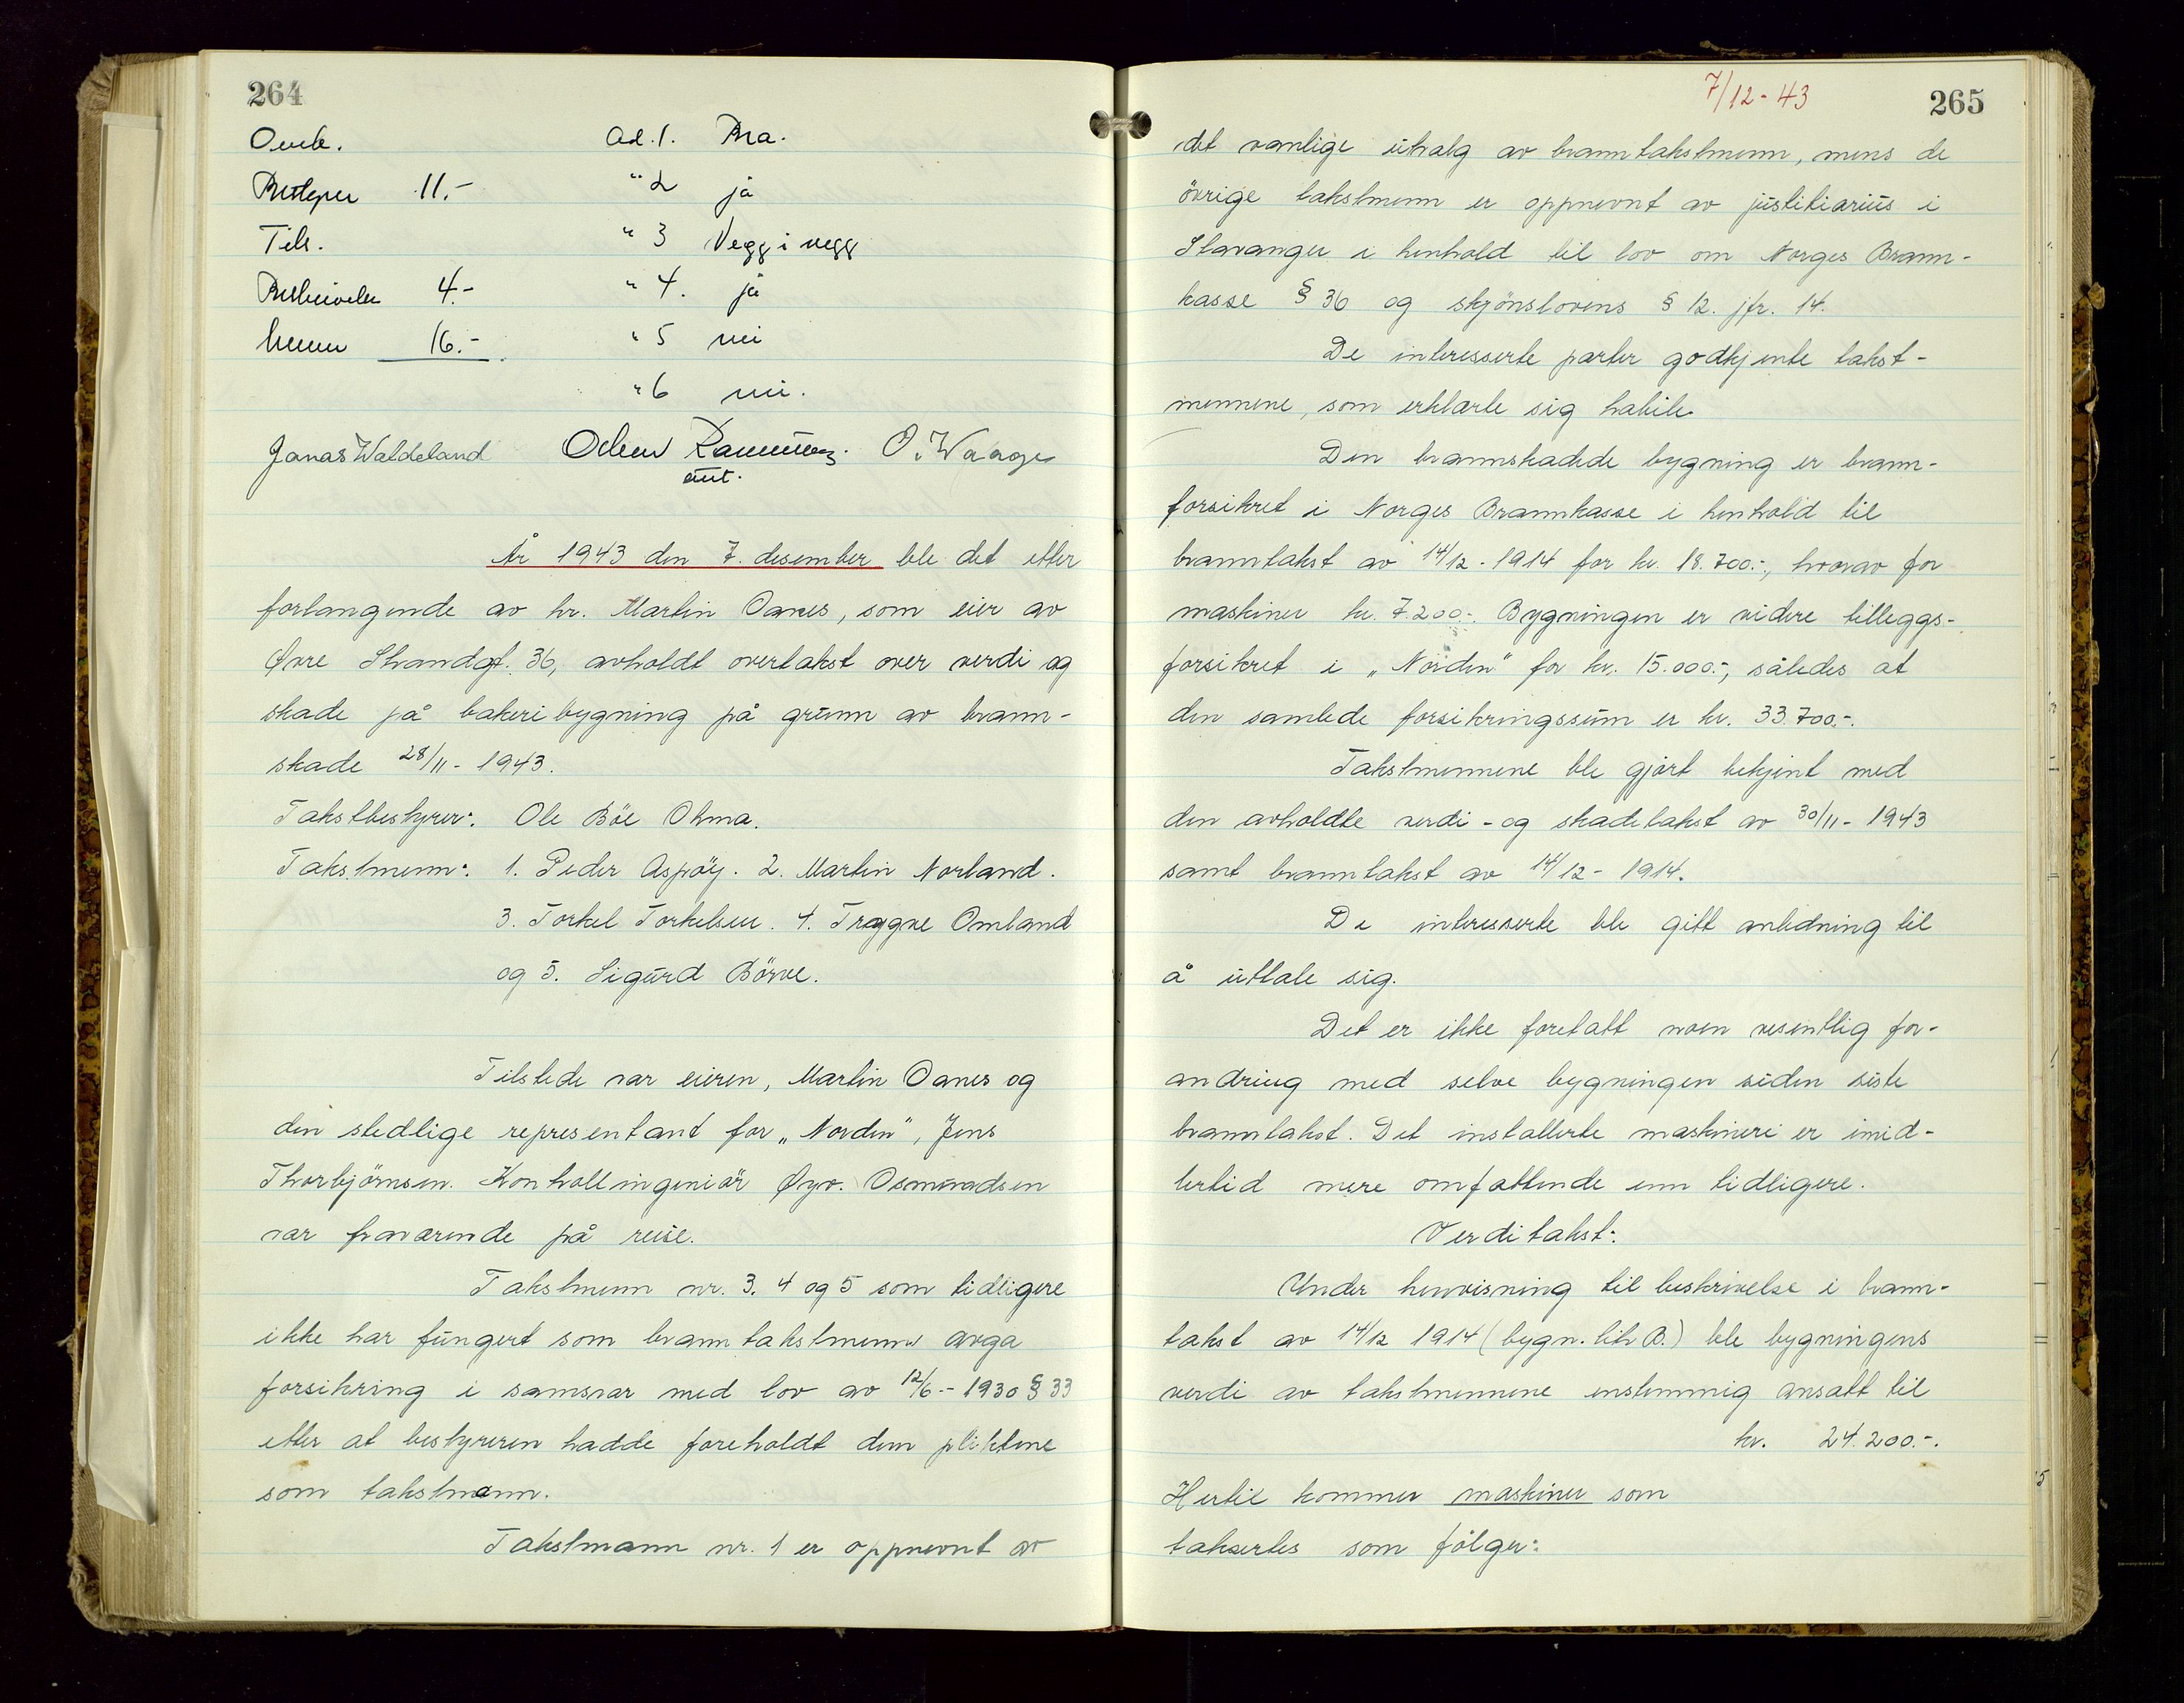 264
Ad. 1. Bra.
11.- " 2 ja
" 3 Vegg i vegg
4.- " 4. ja
16.- " 5 nei
" 6 nei.
Jonas Waldeland O. Waage
År 1943 den 7. desember ble det etter
forlangende av hr. Martin Oanes, som eier av
Øvre Strandgt. 36, avholdt overtakst over verdi og
skade på bakeribygning på grunn av brann-
skade 28/11 - 1943.
Takstbestyrer: Ole Böe Ohma.
Takstmenn: 1. Peder Aspöy. 2. Martin Norland.
3. Torkel Torkelsen. 4. Tryggve Omland
og 5. Sigurd Börve.
Tilstede var eieren, Martin Oanes og
den stedlige representant for „Norden", Jens
Thorbjörnsen. Kontrollingeniör Øyv. Osmundsen
var fraværende på reise.
Takstmenn nr. 3, 4 og 5 som tidligere
ikke har fungert som branntakstmenn avga
forsikring i samsvar med lov av 12/6 - 1930 § 33
etter at bestyreren hadde foreholdt dem pliktene
som takstmann.
Takstmann nr. 1 er oppnevnt av
7/12 - 43
265
det vanlige utvalg av branntakstmenn, mens de
övrige takstmenn er oppnevnt av justitiarius i
Stavanger i henhold til lov om Norges Brann-
kasse § 36 og skjönslovens § 12. jfr. 14.
De interesserte parter godkjente takst-
mennene, som erklærte sig habile.
Den brannskadede bygning er brann-
forsikret i Norges Brannkasse i henhold til
branntakst av 14/12 - 1914 for kr. 18.700.-, hvorav for
maskiner kr. 7.200.-. Bygningen er videre tilleggs-
forsikret i „Norden" for kr. 15.000.-, således at
den samlede forsikringssum er kr. 33.700.-.
Takstmennene ble gjort bekjent med
den avholdte verdi - og skadetakst av 30/11 - 1943
samt branntakst av 14/12 - 1914.
De interesserte ble gitt anledning til
å uttale sig.
Det er ikke foretatt noen vesentlig for-
andring med selve bygningen siden siste
branntakst. Det installerte maskineri er imid-
lertid mere omfattende enn tidligere.
Verditakst:
Under henvisning til beskrivelse i brann-
takst av 14/12 1914 (bygn. litr B.) ble bygningens
verdi av takstmennene enstemmig ansatt til
kr. 24.200.-.
Hertil kommer maskiner som
takseres som fölger: